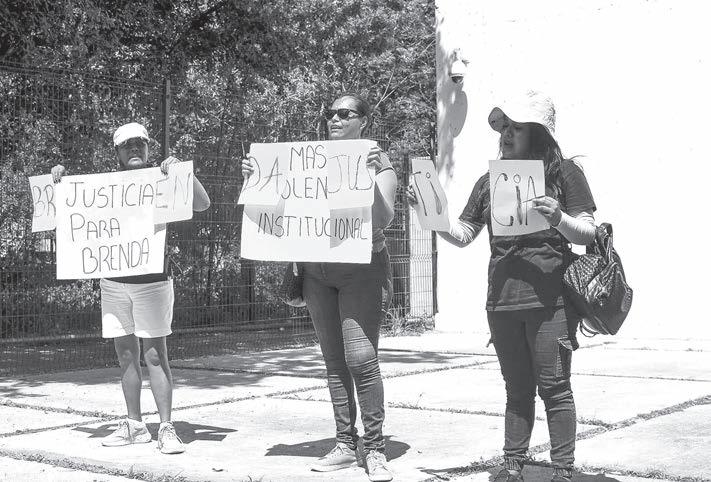 BR
JUSTICIA
PARA
BRENDA
EN
DA
MAS
OLEN
JUS
INSTITUCIONAL
TI
CiA